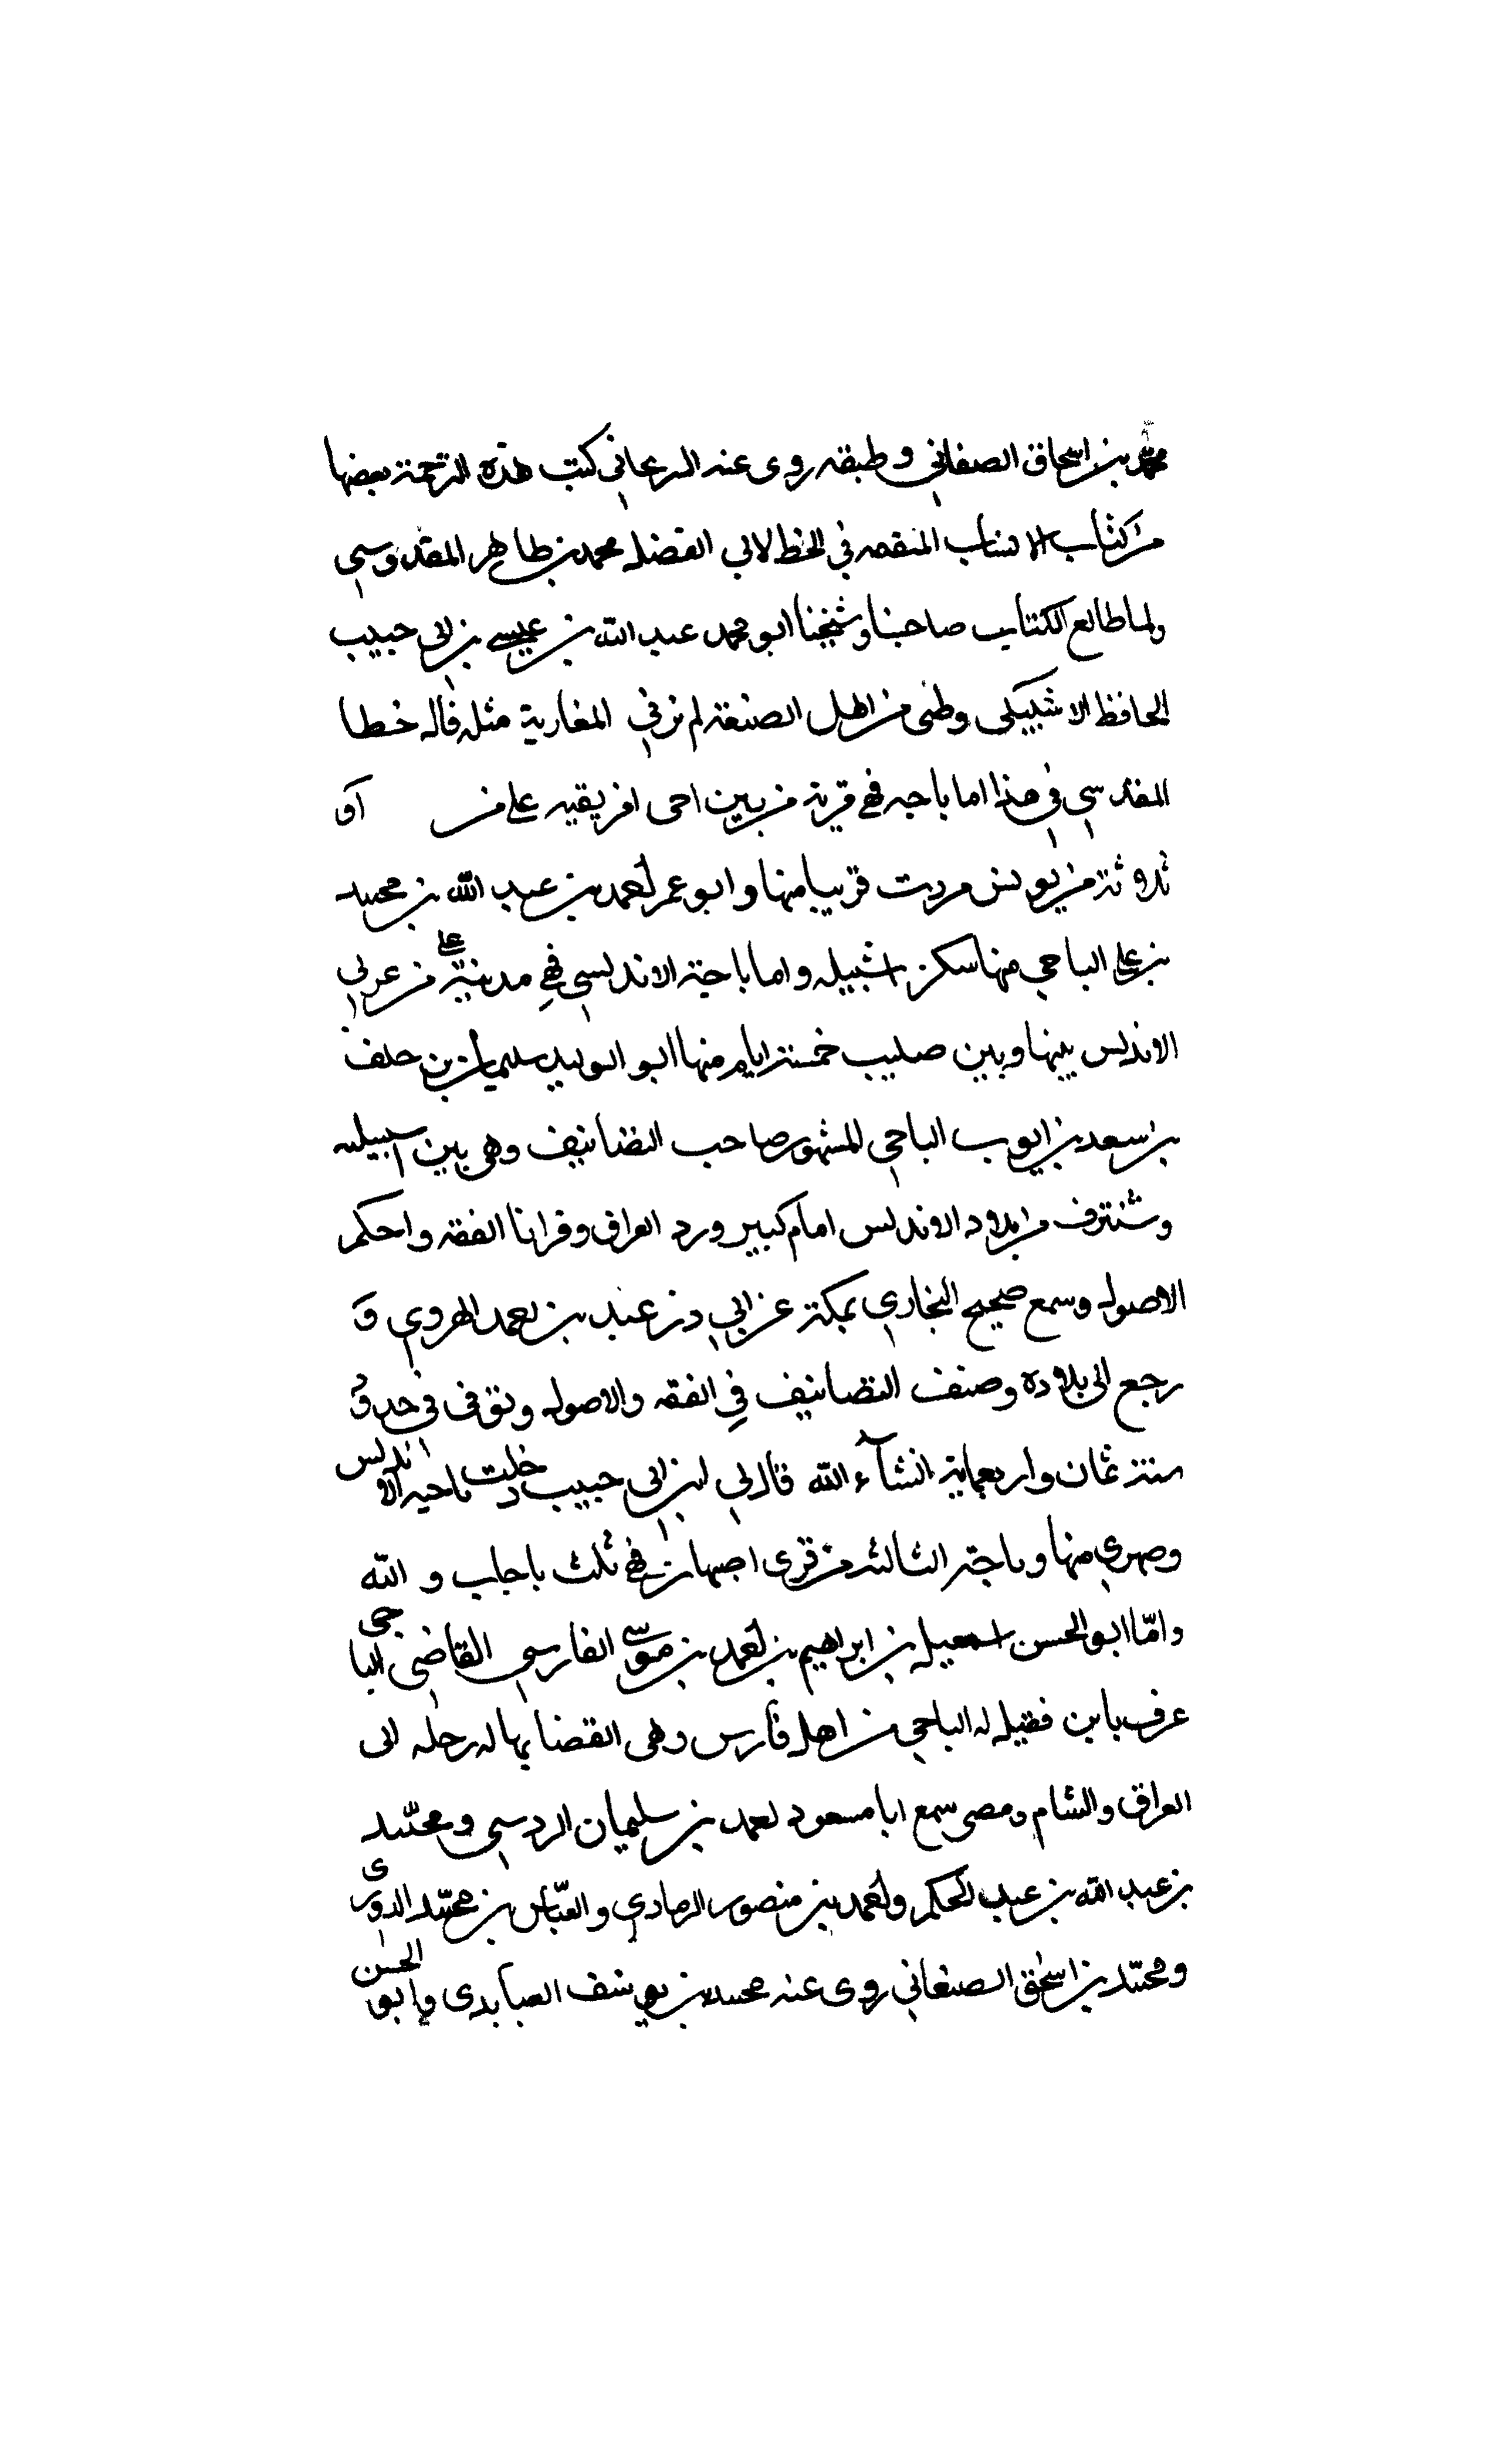 محمد بن اسحاق الصغاني وطبقه روى عنه السرعاني كتب هذه الترجمة بعضها
من كتاب الانساب المتفقه في الخط لابي الفضل محمد بن طاهر المقدوسي
ولما طالع الكتاب صاحبنا وشيخنا ابو محمد عبد الله بن عيسى بن ابي حبيب
الحافظ الاشبيلي وطنى من اهل الصنعة لم نر في المغاربة مثله قال خطا
المقدسي في هذا اما باجه فهي قرية من بين احى افريقيه على من او
ثلاثة من يونس مردت قريبا منها وابو عمر احمد بن عبد الله بن محمد
بن علي الباجي منها سكن اشبيله واما باجة الاندلسي فهي مدينة على من غربي
الاندلس بينها وبين صليب خمسة ايام منها ابو الوليد سليمان بن خلف
بن سعد بن ايوب الباجي المشهور صاحب التصانيف وهي بين اسبيليه
وشنترف من بلاد الاندلس امام كبير ورد العراق وقرانا الفقه واحكم
الاصول وسمع صحيح البخاري بمكة عن ابي در عبد بن احمد الهروي و
رجع الى بلاده وصنف التصانيف في الفقه والاصول وتوفى في حدو
سنة ثمان واربعماية انشآء الله قال لي ابن ابي حبيب دخلت ناحية الاندلس
وصهري منها وباجة الثالثه من قرى اصبهان فهي ثلث باجاب و الله
وامّا ابو الحسن اسمعيل بن ابراهيم بن احمد بن موسى الفارسي القاضي الباجي
عرف بابن فقيل له الباجي من اهل فارس وهى القضا بها له رحله الى
العراق والشام ومصر سمع ابا مسعود احمد بن سليمان الردسي ومحمّد
بن عبد الله بن عبد الحكم واحمد بن منصور الرمادي والعبّاس بن محمّد الدورى
ومحمّد بن اسحق الصنعاني روى عنه محمد بن يوسف العبابدى وابو الحسن